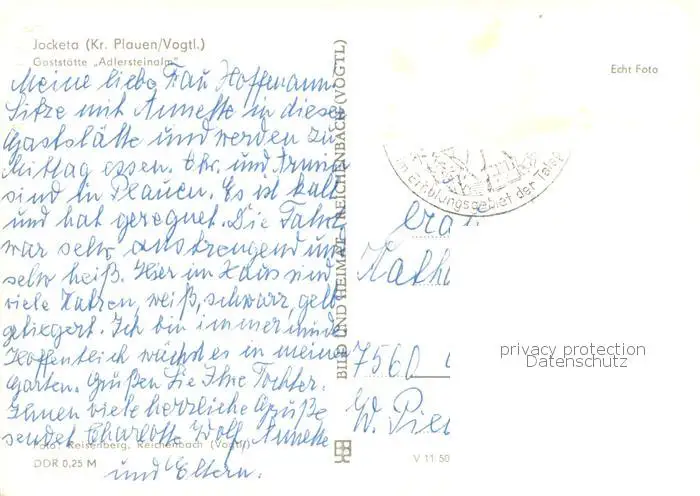 Jocketa (Kr. Plauen/Vogtl.)
Gaststätte „Adlersteinalm"
Meine liebe Frau Hoffmann.
Sitze mit Annette in dieser
Gaststätte und werden zu
Mittag essen. Chr. und Armin
sind in Plauen. Es ist kalt
und hat geregnet. Die Fahrt
war sehr anstrengend und
sehr heiß. Hier im Haus sind
viele Katzen, weiß, schwarz, gelb
getigert. Ich bin immer müde
Hoffentlich wächst es in meinem
Garten. Grüßen Sie Ihre Tochter.
Ihnen viele herzliche Grüße
sendet Charlotte Wolf, Annette
und Eltern.
Foto: Reisenberg, Reichenbach (Vogtl)
DDR 0,25 M
BILD UND HEIMAT REICHENBACH (VOGTL)
V 11 50
Echt Foto
im Erholungsgebiet der Talsp
Kath
7560
W. Pie
privacy protection
Datenschutz